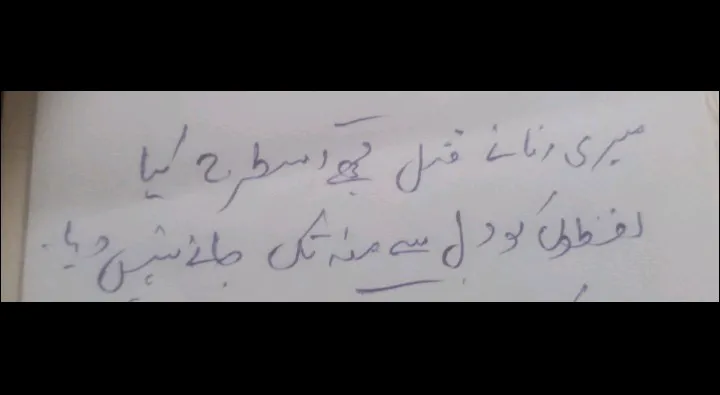 میری انا نے قتل مجھے اسطرح کیا
لفظوں کو دل سے منہ تک جانے نہیں دیا۔